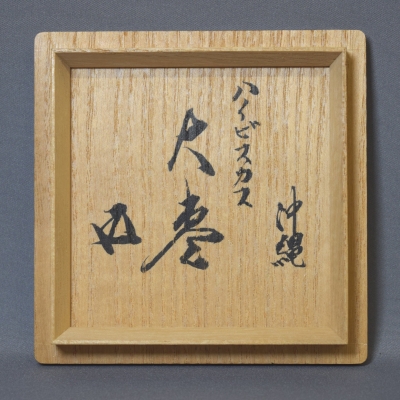 沖縄
ハイビスカス
大棗